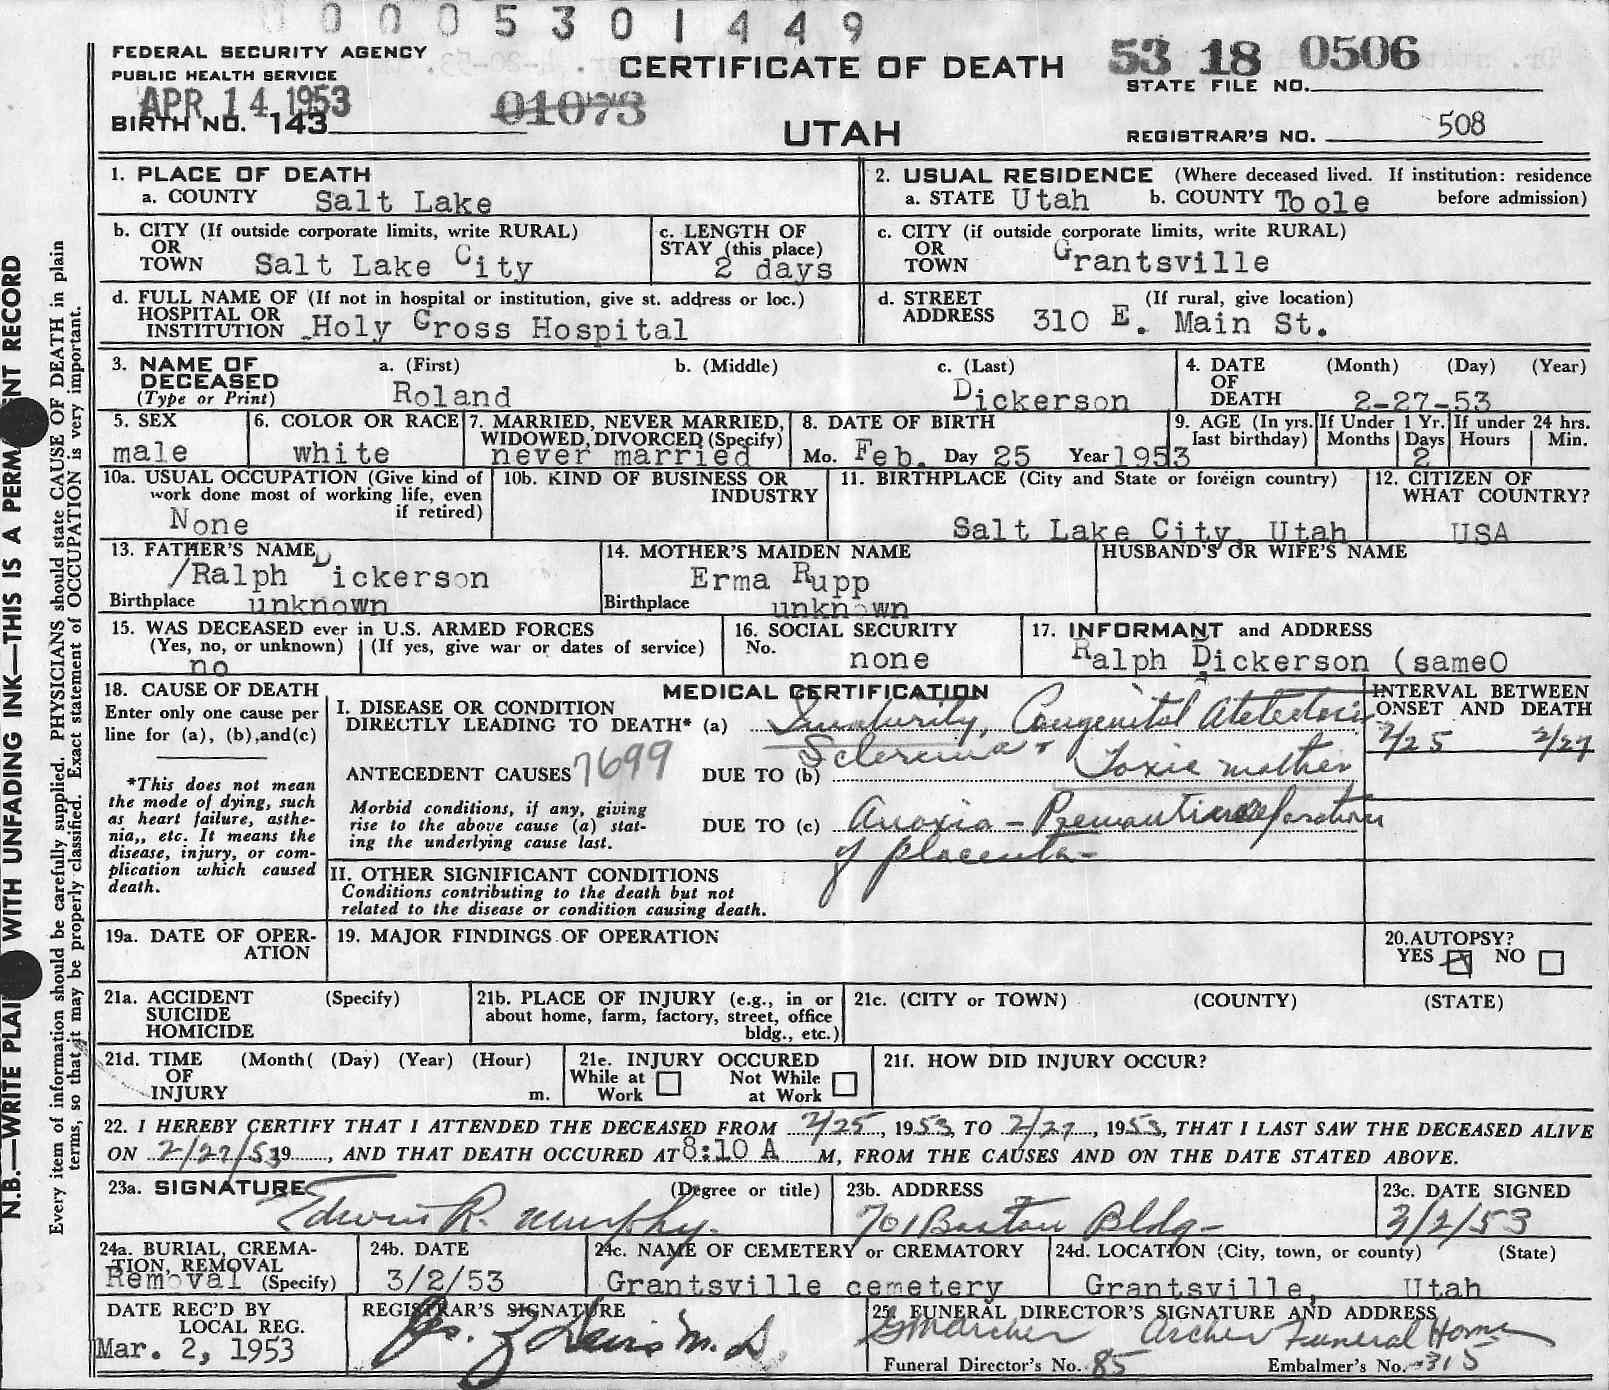 0 0 0 5 3 0 1 4 4 9
FEDERAL SECURITY AGENCY
PUBLIC HEALTH SERVICE
APR 14 1953
BIRTH NO. 143
01073
CERTIFICATE OF DEATH
UTAH
53 18 0506
STATE FILE NO.
REGISTRAR'S NO. 508
1. PLACE OF DEATH
a. COUNTY Salt Lake
2. USUAL RESIDENCE (Where deceased lived. If institution: residence before admission)
a. STATE Utah b. COUNTY Toole
b. CITY (If outside corporate limits, write RURAL)
OR
TOWN Salt Lake City
c. LENGTH OF
STAY (this place)
2 days
c. CITY (if outside corporate limits, write RURAL)
OR
TOWN Grantsville
d. FULL NAME OF (If not in hospital or institution, give st. address or loc.)
HOSPITAL OR
INSTITUTION Holy Cross Hospital
d. STREET (If rural, give location)
ADDRESS 310 E. Main St.
3. NAME OF
DECEASED
(Type or Print)
a. (First) b. (Middle) c. (Last)
Roland Dickerson
4. DATE (Month) (Day) (Year)
OF
DEATH 2-27-53
5. SEX
male
6. COLOR OR RACE
white
7. MARRIED, NEVER MARRIED,
WIDOWED, DIVORCED (Specify)
never married
8. DATE OF BIRTH
Mo. Feb. Day 25 Year 1953
9. AGE (In yrs. last birthday)
If Under 1 Yr. If under 24 hrs.
Months Days Hours Min.
2
10a. USUAL OCCUPATION (Give kind of
work done most of working life, even
if retired)
None
10b. KIND OF BUSINESS OR
INDUSTRY
11. BIRTHPLACE (City and State or foreign country)
Salt Lake City, Utah
12. CITIZEN OF
WHAT COUNTRY?
USA
13. FATHER'S NAME
/Ralph Dickerson
Birthplace unknown
14. MOTHER'S MAIDEN NAME
Erma Rupp
Birthplace unknown
HUSBAND'S OR WIFE'S NAME
15. WAS DECEASED ever in U.S. ARMED FORCES
(Yes, no, or unknown) (If yes, give war or dates of service)
no
16. SOCIAL SECURITY
No. none
17. INFORMANT and ADDRESS
Ralph Dickerson (sameO
18. CAUSE OF DEATH
Enter only one cause per
line for (a), (b), and (c)
*This does not mean
the mode of dying, such
as heart failure, asthe-
nia,, etc. It means the
disease, injury, or com-
plication which caused
death.
MEDICAL CERTIFICATION
I. DISEASE OR CONDITION
DIRECTLY LEADING TO DEATH* (a) Immaturity, Congenital Atelectasis
Sclerema
ANTECEDENT CAUSES 7699 DUE TO (b) Toxic mother
Morbid conditions, if any, giving
rise to the above cause (a) stat-
ing the underlying cause last.
DUE TO (c) Anoxia - Premature separation
of placenta -
II. OTHER SIGNIFICANT CONDITIONS
Conditions contributing to the death but not
related to the disease or condition causing death.
INTERVAL BETWEEN
ONSET AND DEATH
2/25 2/27
19a. DATE OF OPER-
ATION
19. MAJOR FINDINGS OF OPERATION
20. AUTOPSY?
YES NO
21a. ACCIDENT (Specify)
SUICIDE
HOMICIDE
21b. PLACE OF INJURY (e.g., in or
about home, farm, factory, street, office
bldg., etc.)
21c. (CITY or TOWN) (COUNTY) (STATE)
21d. TIME (Month( (Day) (Year) (Hour)
OF
INJURY m.
21e. INJURY OCCURED
While at Work Not While at Work
21f. HOW DID INJURY OCCUR?
22. I HEREBY CERTIFY THAT I ATTENDED THE DECEASED FROM 2/25, 1953, TO 2/27, 1953, THAT I LAST SAW THE DECEASED ALIVE
ON 2/27/53 19, AND THAT DEATH OCCURED AT 8:10 A M, FROM THE CAUSES AND ON THE DATE STATED ABOVE.
23a. SIGNATURE (Degree or title)
Edwin R. Murphy.
23b. ADDRESS
701 Boston Bldg-
23c. DATE SIGNED
3/2/53
24a. BURIAL, CREMA-
TION, REMOVAL
Removal (Specify)
24b. DATE
3/2/53
24c. NAME OF CEMETERY or CREMATORY
Grantsville cemetery
24d. LOCATION (City, town, or county) (State)
Grantsville, Utah
DATE REC'D BY
LOCAL REG.
Mar. 2, 1953
REGISTRAR'S SIGNATURE
M. D.
25. FUNERAL DIRECTOR'S SIGNATURE AND ADDRESS
Archer Archer Funeral Home
Funeral Director's No. 85 Embalmer's No. 315
N.B.—WRITE PLAI WITH UNFADING INK—THIS IS A PERM ENT RECORD
Every item of information should be carefully supplied. PHYSICIANS should state CAUSE OF DEATH in plain
terms, so that it may be properly classified. Exact statement of OCCUPATION is very important.